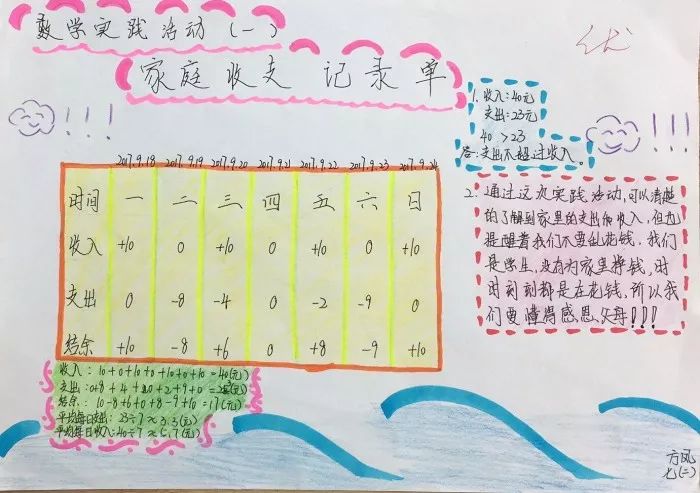 数学实践活动(一)
家庭收支记录单
优
1. 收入：40元
支出：23元
40 > 23
答：支出不超过收入。
2017.9.18 2017.9.19 2017.9.20 2017.9.21 2017.9.22 2017.9.23 2017.9.24
时间 一 二 三 四 五 六 日
收入 +10 0 +10 0 +10 0 +10
支出 0 -8 -4 0 -2 -9 0
结余 +10 -8 +6 0 +8 -9 +10
2. 通过这次实践活动，可以清楚
的了解到家里的支出和收入，但也
提醒着我们不要乱花钱，我们
是学生，没有为家里挣钱，时
时刻刻都是在花钱，所以我
们要懂得感恩父母!!!
收入：10+0+10+0+10+0+10=40(元)
支出：0+8+4+0+2+9+0=23(元)
结余：10-8+6+0+8-9+10=17(元)
平均每日支出：23÷7≈3.3(元)
平均每日收入：40÷7≈5.7(元)
方凤
七(二)